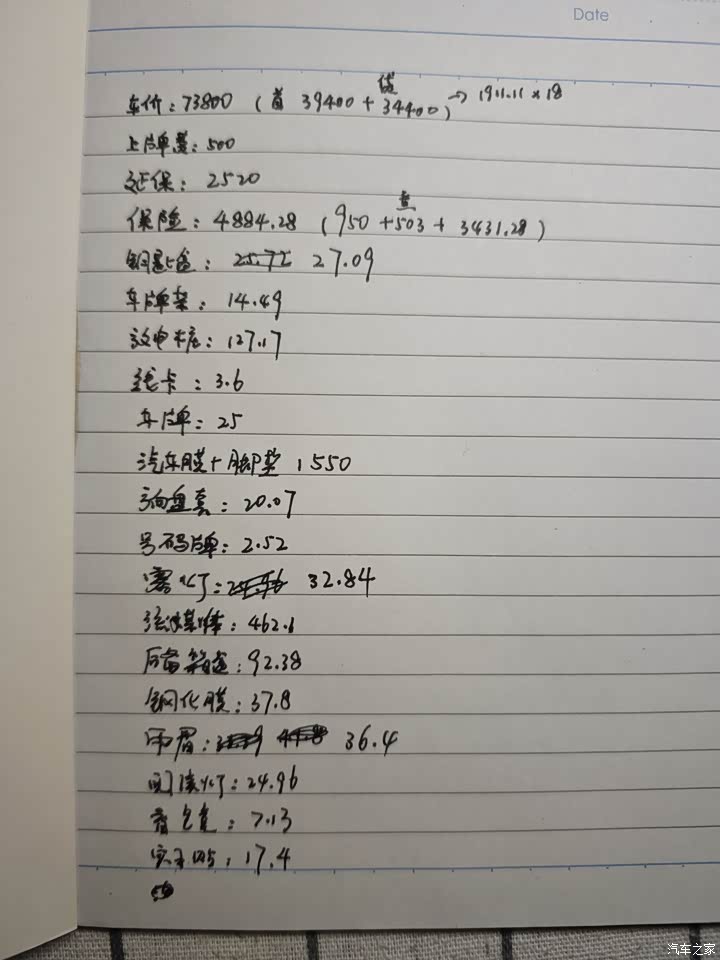 Date
车价：73800（首 39400 + 贷 34400）→ 1911.11 × 18
上牌费：500
延保：2520
保险：4884.28（950 + 503 + 3431.28）
钥匙盒：25.72 27.09
车牌架：14.49
放电枪：127.17
线卡：3.6
车牌：25
汽车膜+脚垫 1550
方向盘套：20.07
号码牌：2.52
雾灯： 32.84
462.1
后备箱垫：92.38
钢化膜：37.8
雨眉： 36.4
阅读灯：24.96
香包：7.13
17.4
汽车之家